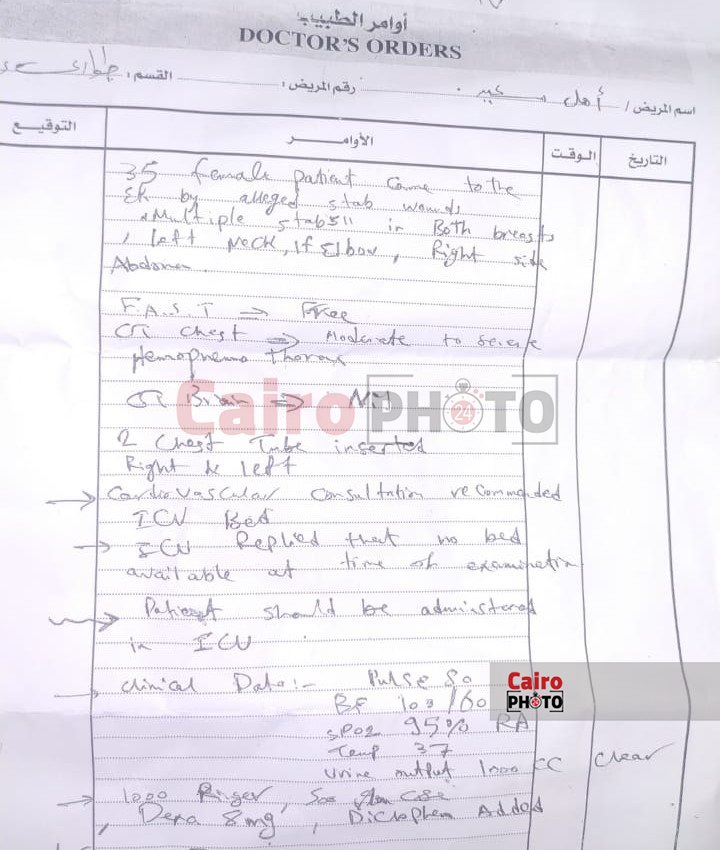 أوامر الطبيب
DOCTOR'S ORDERS
اسم المريض / أمل رقم المريض : القسم :
التاريخ الوقت الأوامر التوقيع
35 female patient came to the
ER by alleged stab wounds
Multiple stabs in Both breasts
, left Neck, lf Elbow, Right side
Abdomen
F.A.S.T ⇒ Free
CT chest ⇒ Moderate to severe
Hemopneumo Thorax
CT Brain ⇒
Cairo PHOTO 24
2 Chest Tube inserted
Right & left
→ Cardiovascular Consultation recommended
ICU Bed
→ ICU Replied that no bed
available at time of examination
→ Patient should be administered
in ICU
→ Clinical Data:- Pulse 80
Cairo PHOTO
BP 100/60
SPO2 95% RA
Temp 37
Urine output 1000 CC clear
→ 1000 Ringer, 500
, Dexa 8mg, Added